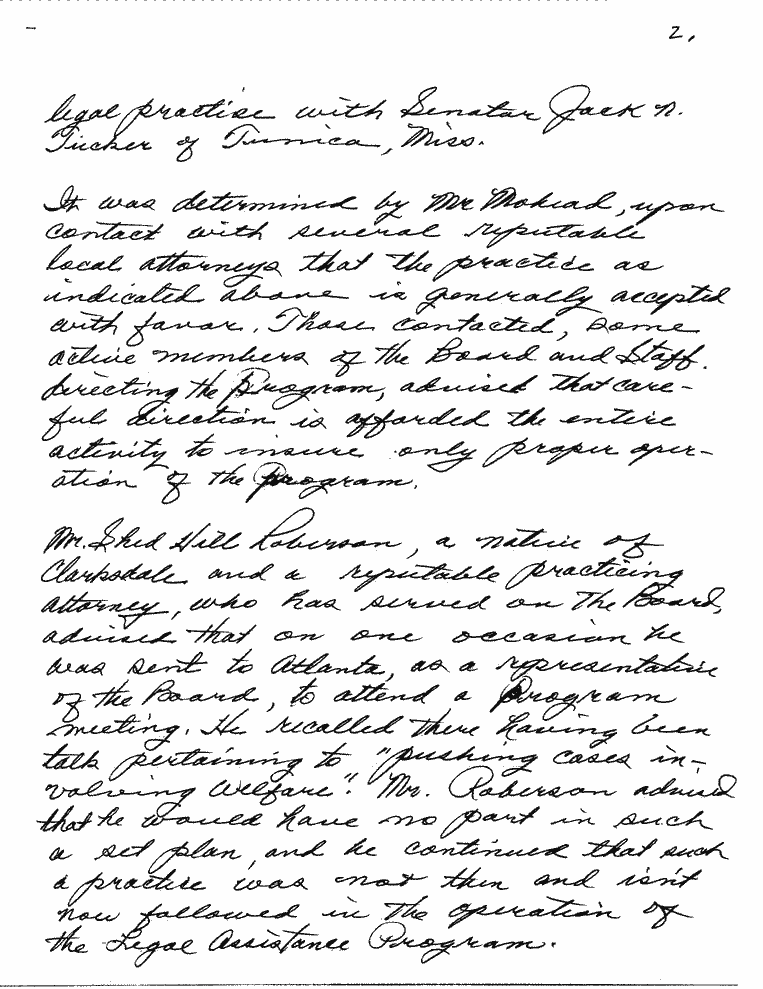 2.
legal practise with Senator Jack N.
Tucker of Tunica, Miss.
It was determined by Mr Mohead, upon
contact with several reputable
local attorneys that the practice as
indicated above is generally accepted
with favor. Those contacted, some
active members of the Board and Staff
directing the Program, advised that care-
ful direction is afforded the entire
activity to insure only proper oper-
ation of the Program.
Mr. Shed Hill Roberson, a native of
Clarksdale and a reputable practicing
attorney, who has served on the Board,
advised that on one occasion he
was sent to Atlanta, as a representative
of the Board, to attend a Program
meeting. He recalled there having been
talk pertaining to "pushing cases in-
volving Welfare". Mr. Roberson advised
that he would have no part in such
a set plan, and he continued that such
a practice was not then and isn't
now followed in the operation of
the Legal Assistance Program.